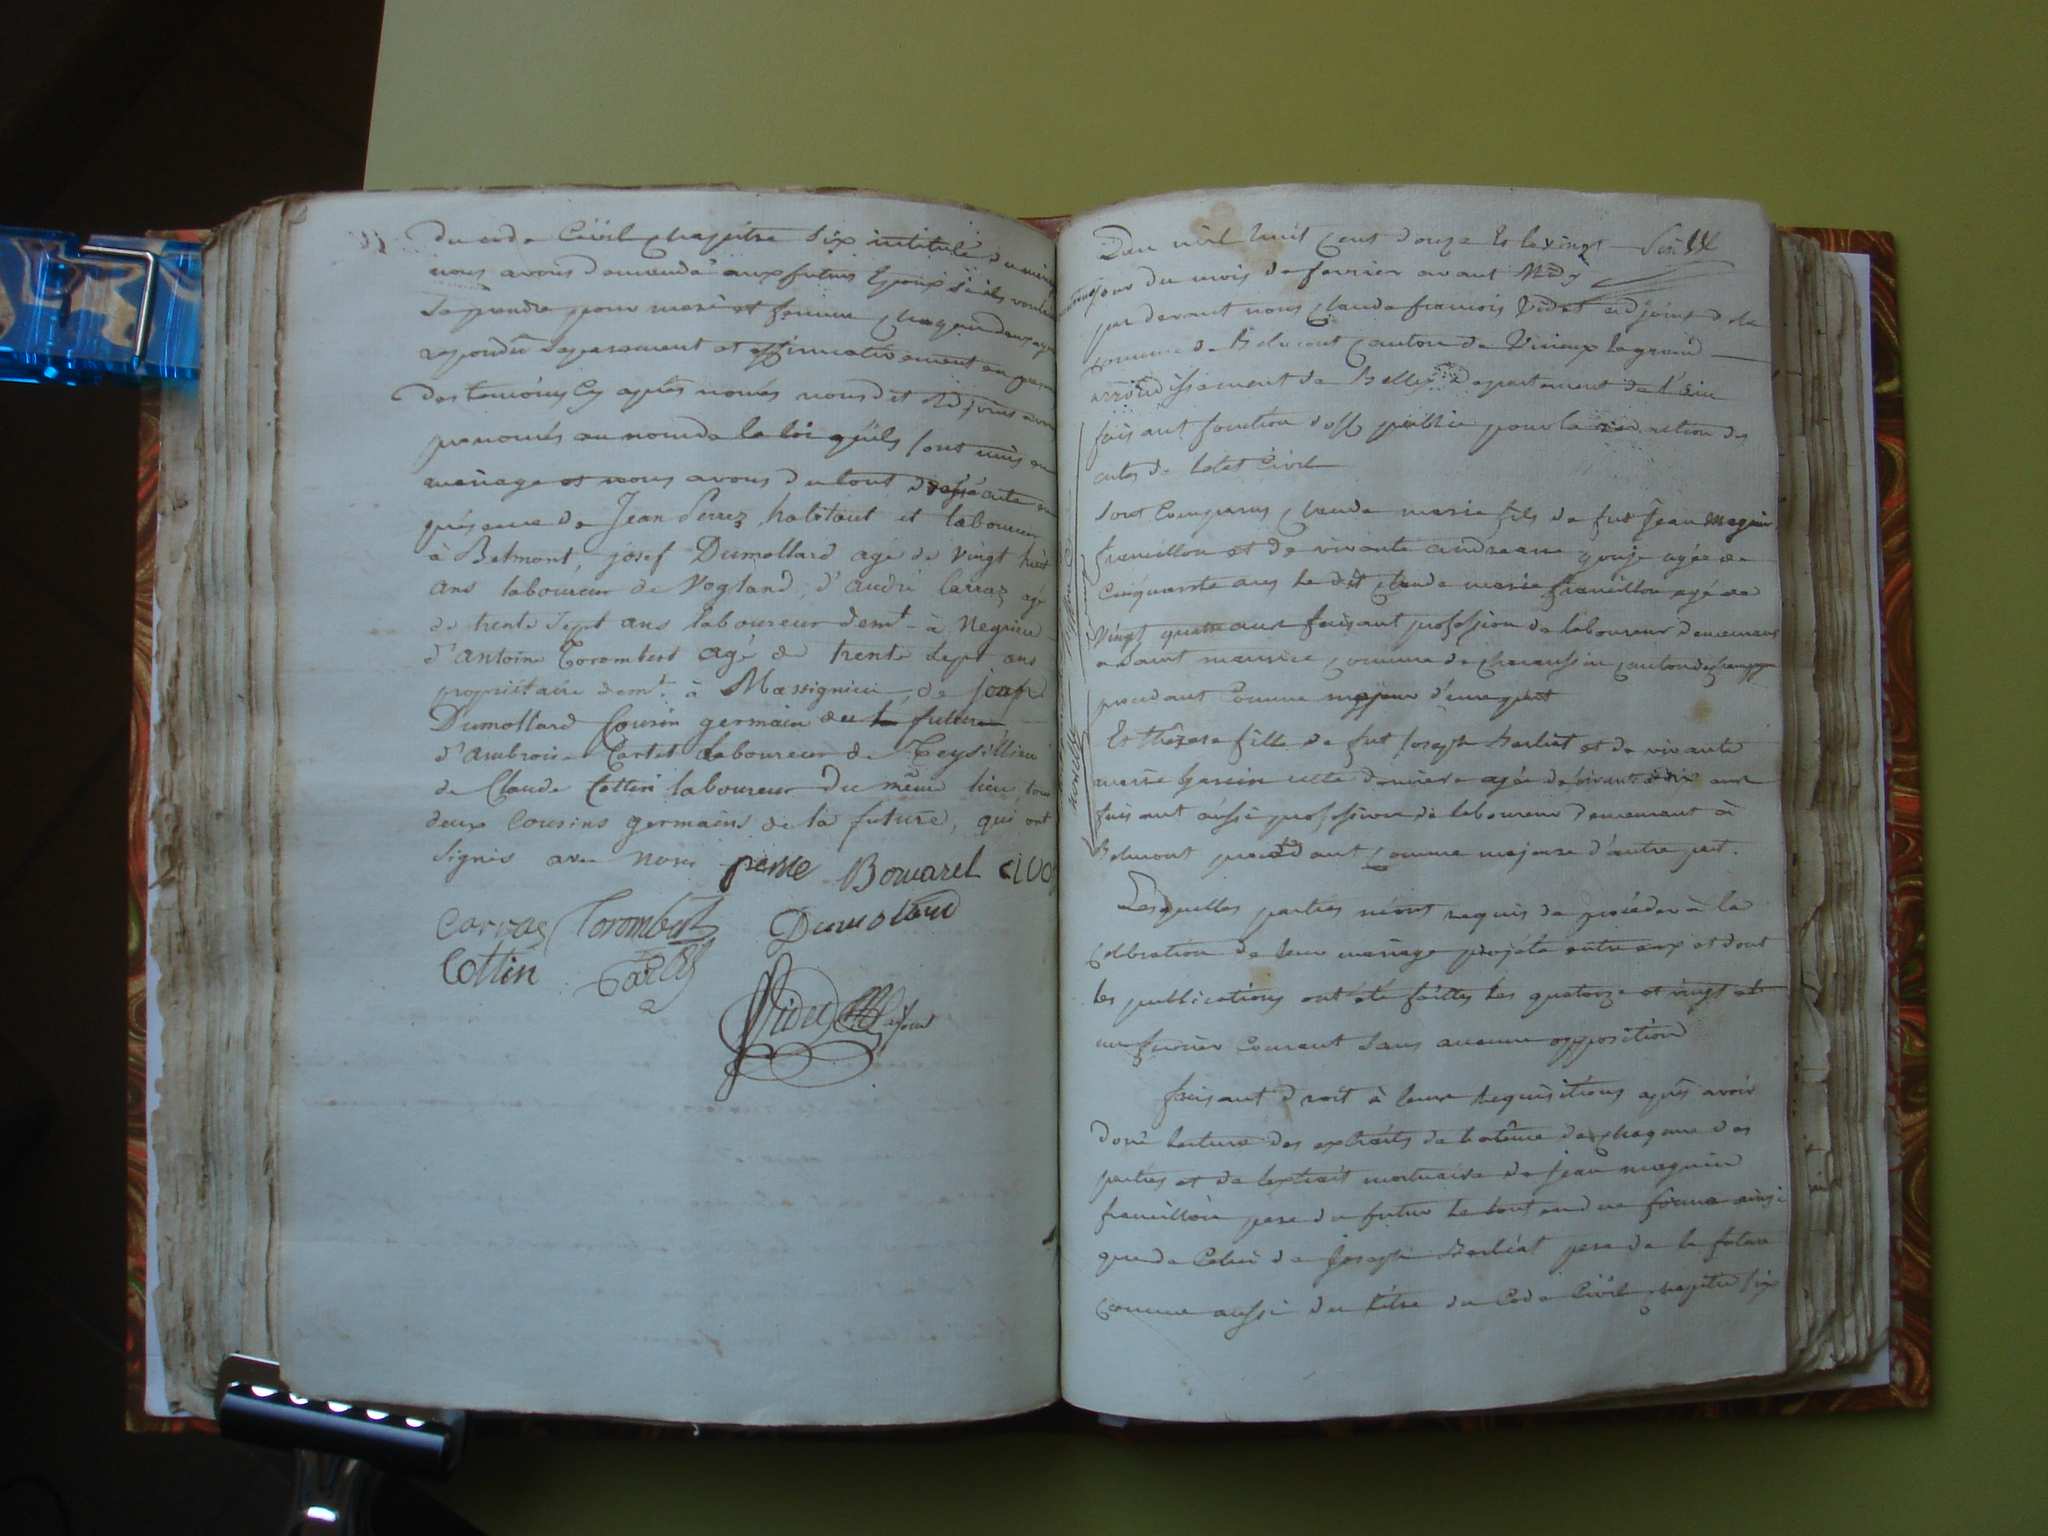 du code Civil chapitre six intitulé du mari
nous avons demendé aux futurs Epoux s'ils veulent
se prendre pour mari et femme chaqun deux ayant
repondu separement et affirmativement en presence
des temoins cy après només nous dit adjoint avons
prenoncés au nom de la loi qu'ils sont unis en
mariage et nous avons du tout dressé acte en
présence de Jean Perrez habitant et laboureur
à Belmont, josef Dumollard agé de vingt huit
ans laboureur de Vogland, d'andré Carraz agé
de trente sept ans laboureur demt à Negrieu
d'antoine Torombert agé de trente sept ans
propriétaire demt à Massignieu de josef
Dumollard Cousin germain de la future
d'ambroise Cartet laboureur de Teysillieu
de Claude Cottin laboureur du même lieu, tous
deux Cousins germains de la future, qui ont
signés avec nous perre Bouvarel
Carraz Torombert Dumollard
Cottin
Videt adjoint
L'an mil huit Cent douze Et le vingt six
jour du mois de fevrier avant Midy
par devant nous Claude francois Videt adjoint de la
commune de Belmont canton de Virieux le grand
arrondissement de Belley Departement de l'ain
faisant fonction d'off public pour la redaction des
actes de letat Civil
sont Comparus Claude marie fils de fut Jean Magnin
framillon et de vivante andreanne gouje agée de
Cinquante ans le dit Claude marie framillon agé de
Vingt quatre ans faisant profession de laboureur demeurant
a saint maurice commune de charansin canton de champagne
procedant Comme majeur d'une part
Et thérese fille de fut Joseph Berliet et de vivante
marie garin cette derniere agée de ans
faisant aussi profession de laboureur demeurant à
Belmont procédant comme majeure d'autre part.
Lesquelles parties m'ont requis de procéder à la
celebration de leur mariage projeté entre eux et dont
les publications ont été faittes les quatorze et vingt et
un fevrier Courant sans aucune opposition
faisant droit à leurs requisitions après avoir
doné lecture des extraits de batême de chaqune des
parties et de lextrait mortuaire de jean magnin
framillon pere du futur le tout en due forme ainsi
que de Celui de Joseph Berliet pere de la future
comme aussi du titre du Code Civil chapitre six